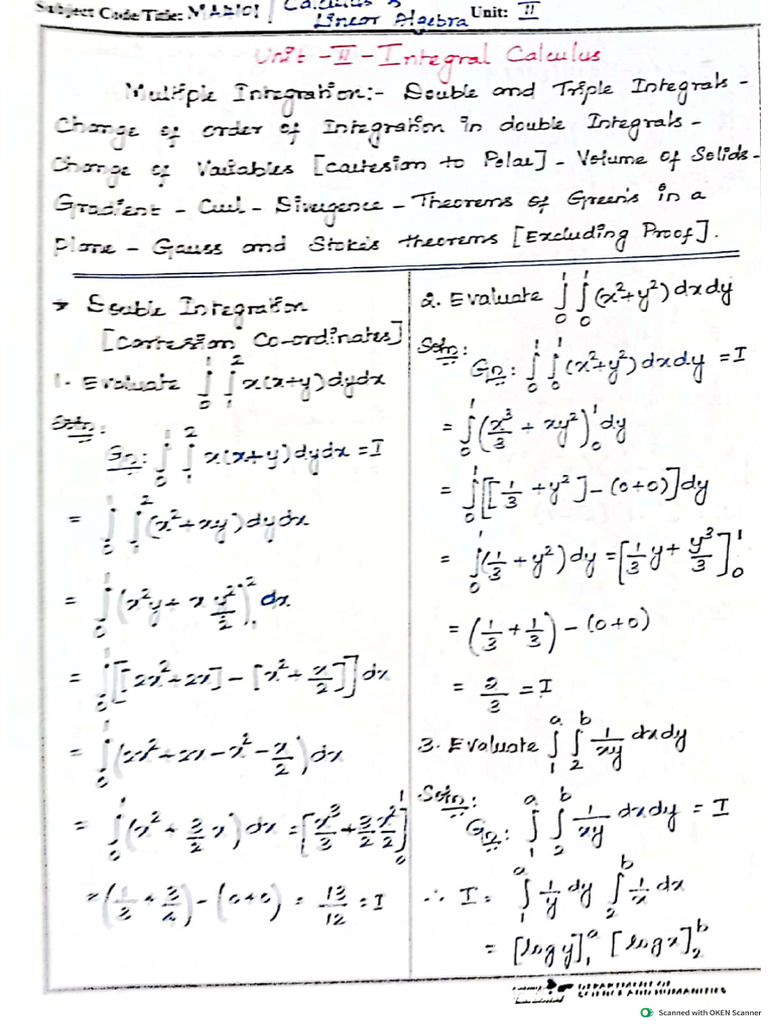 Subject Code/Title: MA2101 / Calculus & Linear Algebra Unit: II
Unit - II - Integral Calculus
Multiple Integration:- Double and Triple Integrals -
Change of order of Integration in double Integrals -
Change of Variables [Cartesion to Polar] - Volume of Solids -
Gradient - Curl - Divergence - Theorems of Green's in a
Plane - Gauss and Stoke's theorems [Excluding Proof].
Double Integration
[Cartesion Co-ordinates]
1. Evaluate ∫₀¹ ∫₁² x(x+y) dy dx
Soln:
Gn: ∫₀¹ ∫₁² x(x+y) dy dx = I
= ∫₀¹ ∫₁² (x²+xy) dy dx
= ∫₀¹ (x²y + x y²/2)₁² dx
= ∫₀¹ [[2x²+2x] - [x² + x/2]] dx
= ∫₀¹ (2x²+2x-x²-x/2) dx
= ∫₀¹ (x² + 3/2 x) dx = [x³/3 + 3/2 x²/2]₀¹
= (1/3 + 3/4) - (0+0) = 13/12 = I
2. Evaluate ∫₀¹ ∫₀¹ (x²+y²) dx dy
Soln:
Gn: ∫₀¹ ∫₀¹ (x²+y²) dx dy = I
= ∫₀¹ (x³/3 + xy²)₀¹ dy
= ∫₀¹ [[1/3 + y²] - (0+0)] dy
= ∫₀¹ (1/3 + y²) dy = [1/3 y + y³/3]₀¹
= (1/3 + 1/3) - (0+0)
= 2/3 = I
3. Evaluate ∫₁ᵃ ∫₂ᵇ 1/xy dx dy
Soln:
Gn: ∫₁ᵃ ∫₂ᵇ 1/xy dx dy = I
∴ I = ∫₁ᵃ 1/y dy ∫₂ᵇ 1/x dx
= [log y]₁ᵃ [log x]₂ᵇ
DEPARTMENT OF
SCIENCE AND HUMANITIES
Scanned with OKEN Scanner